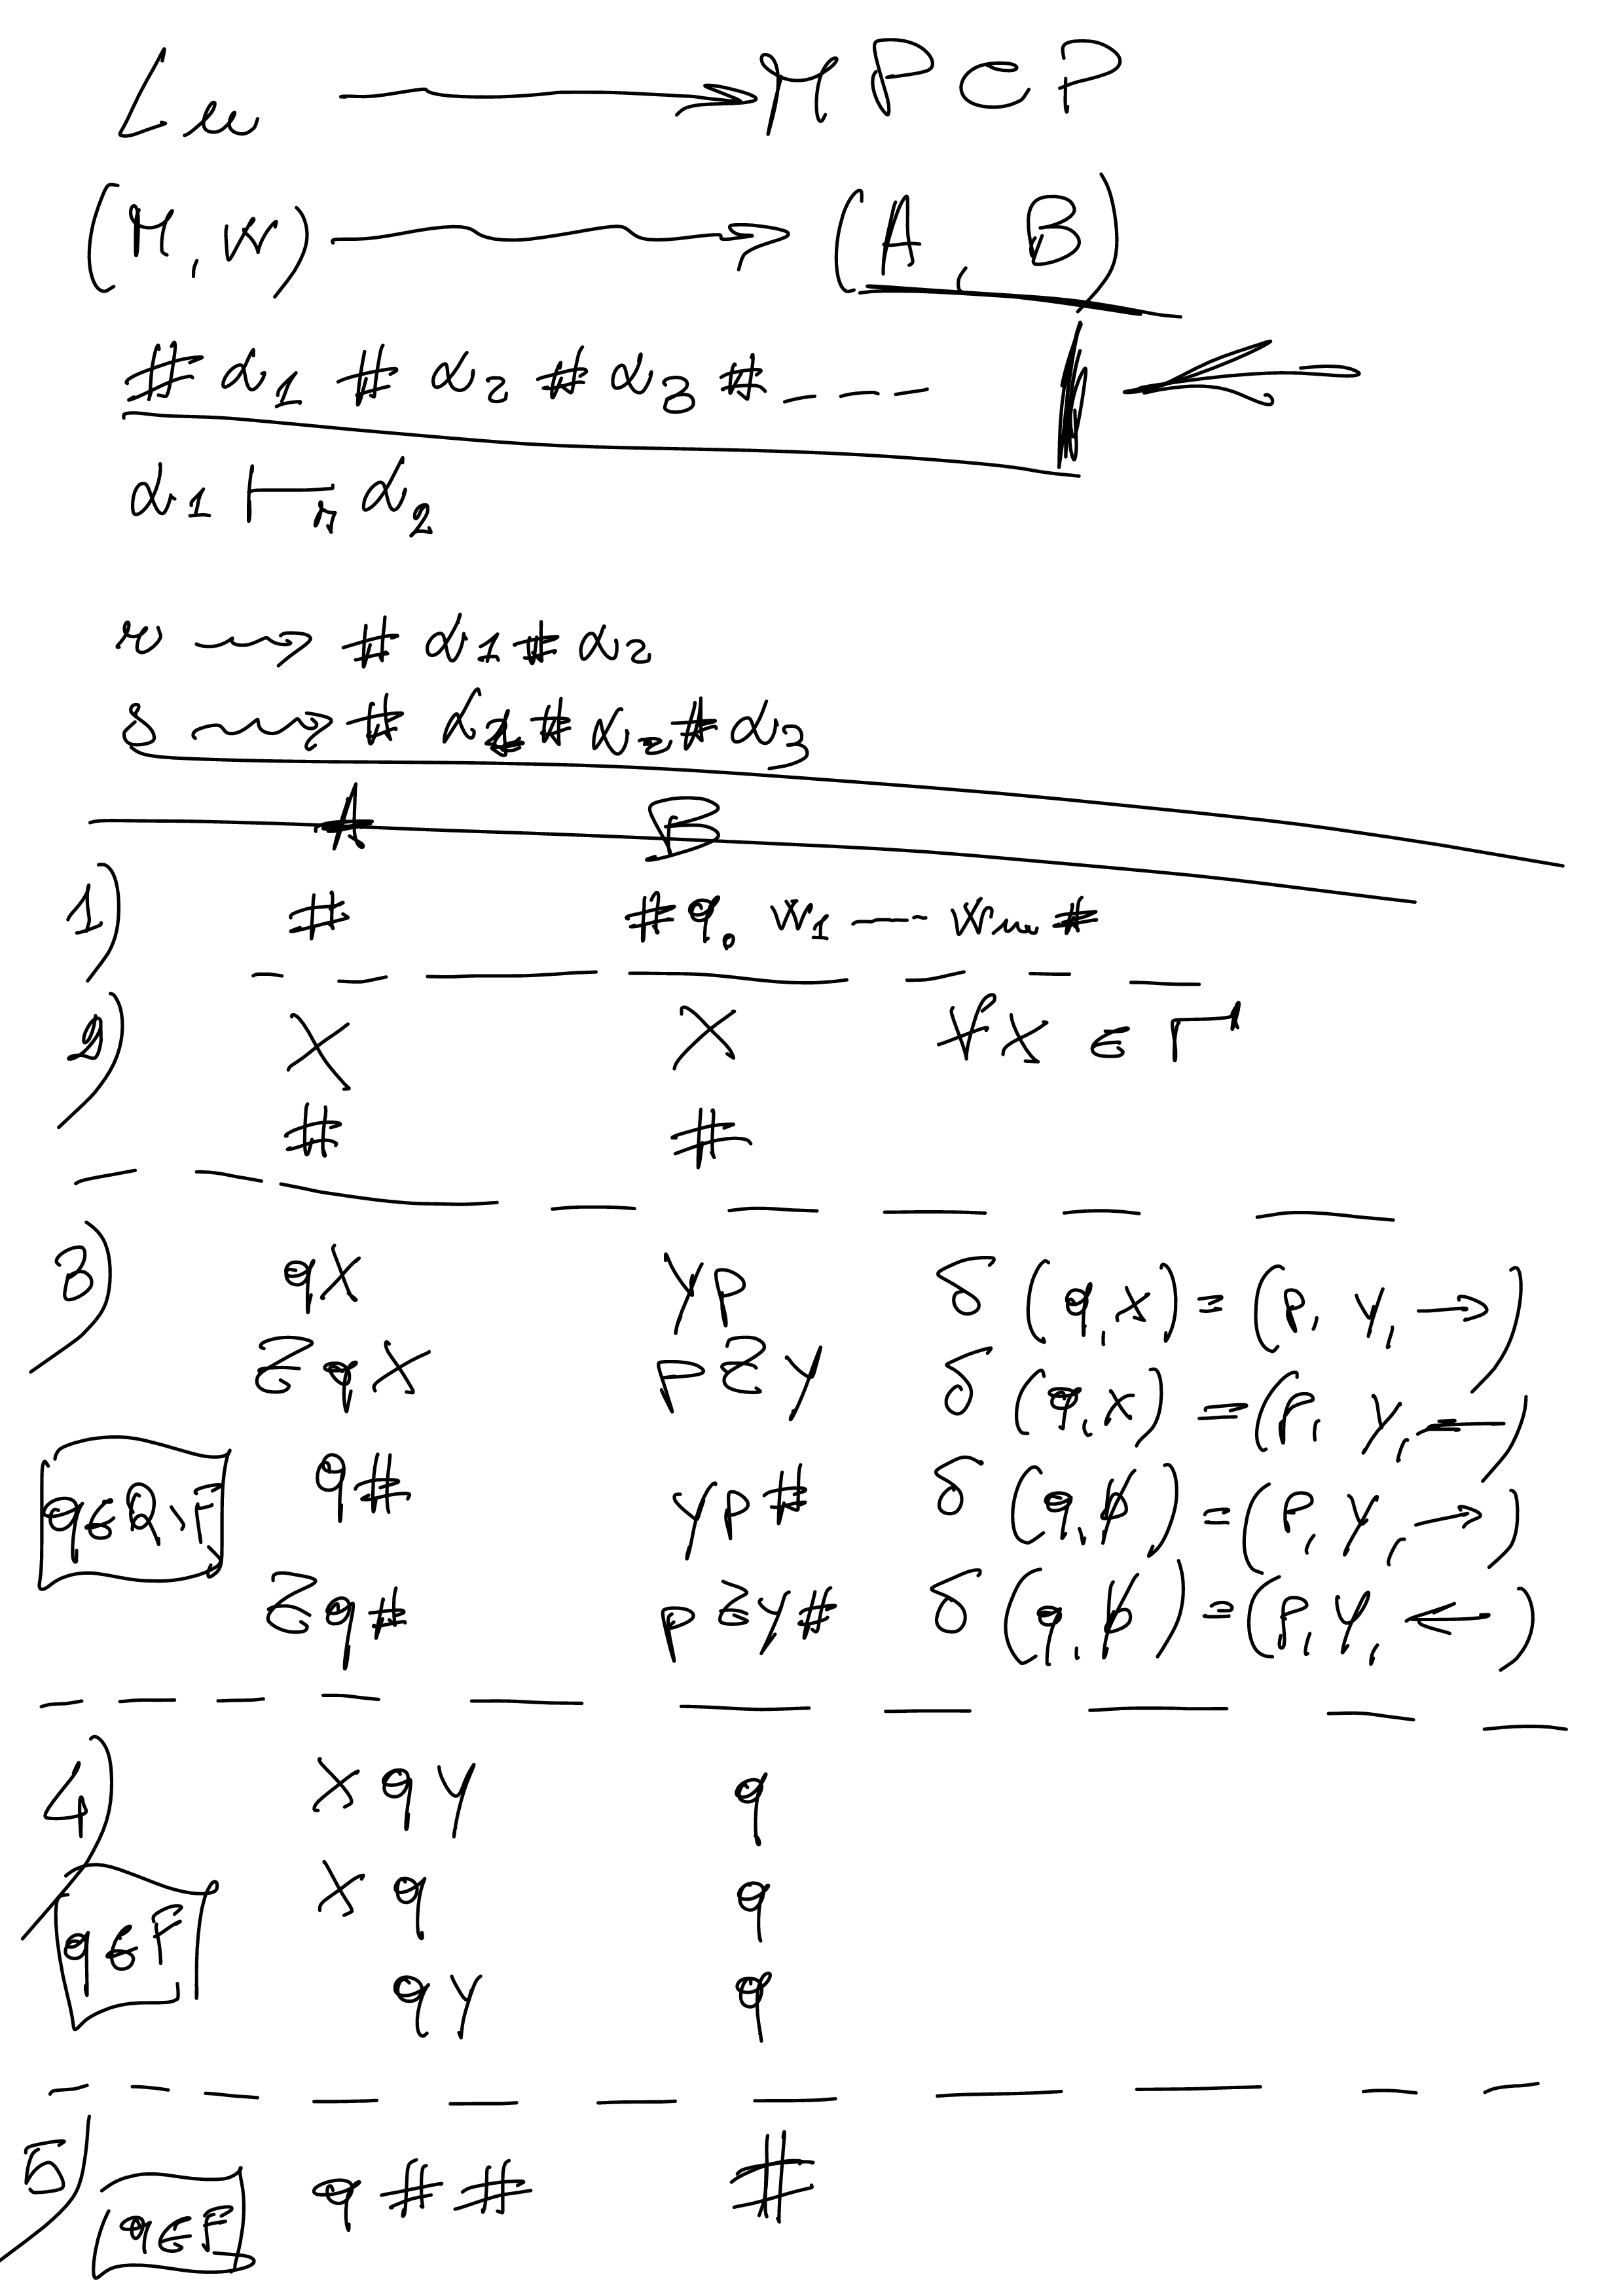 Lu → MPCP
(M, w) → (A, B)
# α1 # α2 # α3 # ....
α1 ⊢M α2
r ⇝ # α1 # α2
s ⇝ # α1 # α2 # α3
A B
1) # # q0 w1 ---- wn #
2) X X ∀ X ∈ Γ
# #
3) qX Yp δ(q, X) = (p, Y, →)
ZqX pZY δ(q, X) = (p, Y, ←)
q∈Q\F q# Yp# δ(q, ƀ) = (p, Y, →)
Zq# pZY# δ(q, ƀ) = (p, Y, ←)
4) XqY q
q∈F Xq q
qY q
5) q∈F q## #